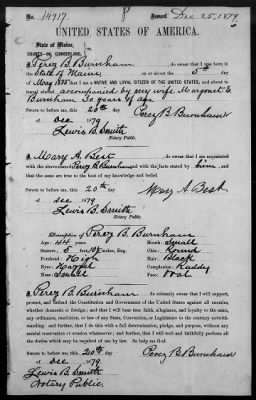 No. 14917. Issued Dec 25, 1879
UNITED STATES OF AMERICA.
State of Maine,
COUNTY OF CUMBERLAND.
I, Percy B. Burnham, do swear that I was born in the
State of Maine on or about the 5th day
of May 1835 that I am a NATIVE AND LOYAL CITIZEN OF THE UNITED STATES, and about to
accompanied by my wife Margaret E.
Burnham 30 years of age
Sworn to before me, this 20th day Percy B Burnham
of Dec 1879
Lewis B. Smith
Notary Public.
I, Mary A. Best, do swear that I am acquainted
with the above named Percy B. Burnham and with the facts stated by him, and
that the same are true to the best of my knowledge and belief.
Sworn to before me, this 20th day Mary A Best
of Dec 1879
Lewis B. Smith
Notary Public.
Description of Percy B. Burnham
Age: 44 years Mouth: Small
Stature: 5 feet, Eng. Chin: Round
Forehead: High Hair: Black
Eyes: Hazel Complexion: Ruddy
Nose: Small Face: Oval
I, Percy B. Burnham, do solemnly swear that I will support,
protect, and defend the Constitution and Government of the United States against all enemies,
whether domestic or foreign; and that I will bear true faith, allegiance, and loyalty to the same,
any ordinance, resolution, or law of any State, Convention, or Legislature to the contrary notwith-
standing; and further, that I do this with a full determination, pledge, and purpose, without any
mental reservation or evasion whatsoever; and further, that I will well and faithfully perform all
the duties which may be required of me by law. So help me God.
Sworn to before me, this 20th day Percy B Burnham
of Dec 1879
Lewis B. Smith
Notary Public